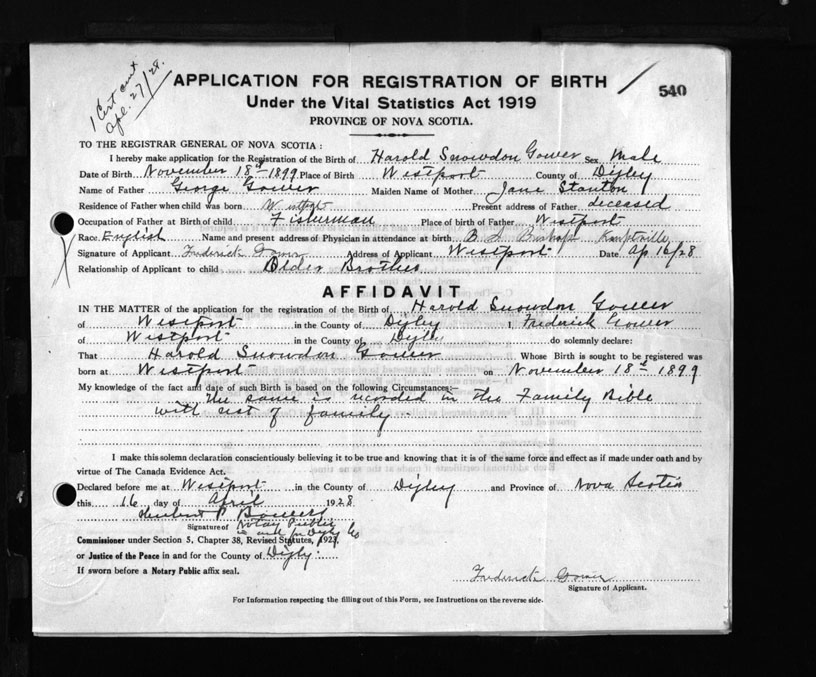 1 Cert sent
Apl. 27/28.
APPLICATION FOR REGISTRATION OF BIRTH
540
Under the Vital Statistics Act 1919
PROVINCE OF NOVA SCOTIA.
TO THE REGISTRAR GENERAL OF NOVA SCOTIA:
I hereby make application for the Registration of the Birth of Harold Snowdon Gower Sex Male
Date of Birth November 18th 1899 Place of Birth Westport County of Digby
Name of Father George Gower Maiden Name of Mother Jane Stanton
Residence of Father when child was born Westport Present address of Father deceased
Occupation of Father at Birth of child Fisherman Place of birth of Father Westport
Race English Name and present address of Physician in attendance at birth Bishop Kemptville
Signature of Applicant Frederick Gower Address of Applicant Westport Date Ap 16/28
Relationship of Applicant to child Older Brother
AFFIDAVIT
IN THE MATTER of the application for the registration of the Birth of Harold Snowdon Gower
of Westport in the County of Digby I, Fredrick Gower
of Westport in the County of Digby do solemnly declare:
That Harold Snowdon Gower Whose Birth is sought to be registered was
born at Westport on November 18th 1899
My knowledge of the fact and date of such Birth is based on the following Circumstances:—
The same is recorded in the Family Bible
with rest of family.
I make this solemn declaration conscientiously believing it to be true and knowing that it is of the same force and effect as if made under oath and by
virtue of The Canada Evidence Act.
Declared before me at Westport in the County of Digby and Province of Nova Scotia
this 16 day of April 1928
Herbert P Bowers
Signature of Notary Public
in and for Digby Co
Commissioner under Section 5, Chapter 38, Revised Statutes, 1923.
or Justice of the Peace in and for the County of Digby.
If sworn before a Notary Public affix seal.
Frederick Gower
Signature of Applicant.
For Information respecting the filling out of this Form, see Instructions on the reverse side.